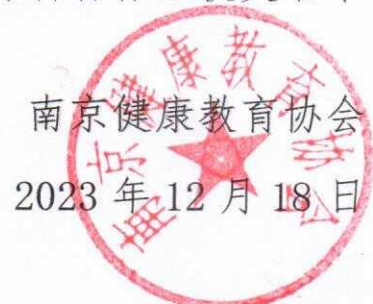 南京健康教育协会
2023 年 12 月 18 日
南京健康教育协会